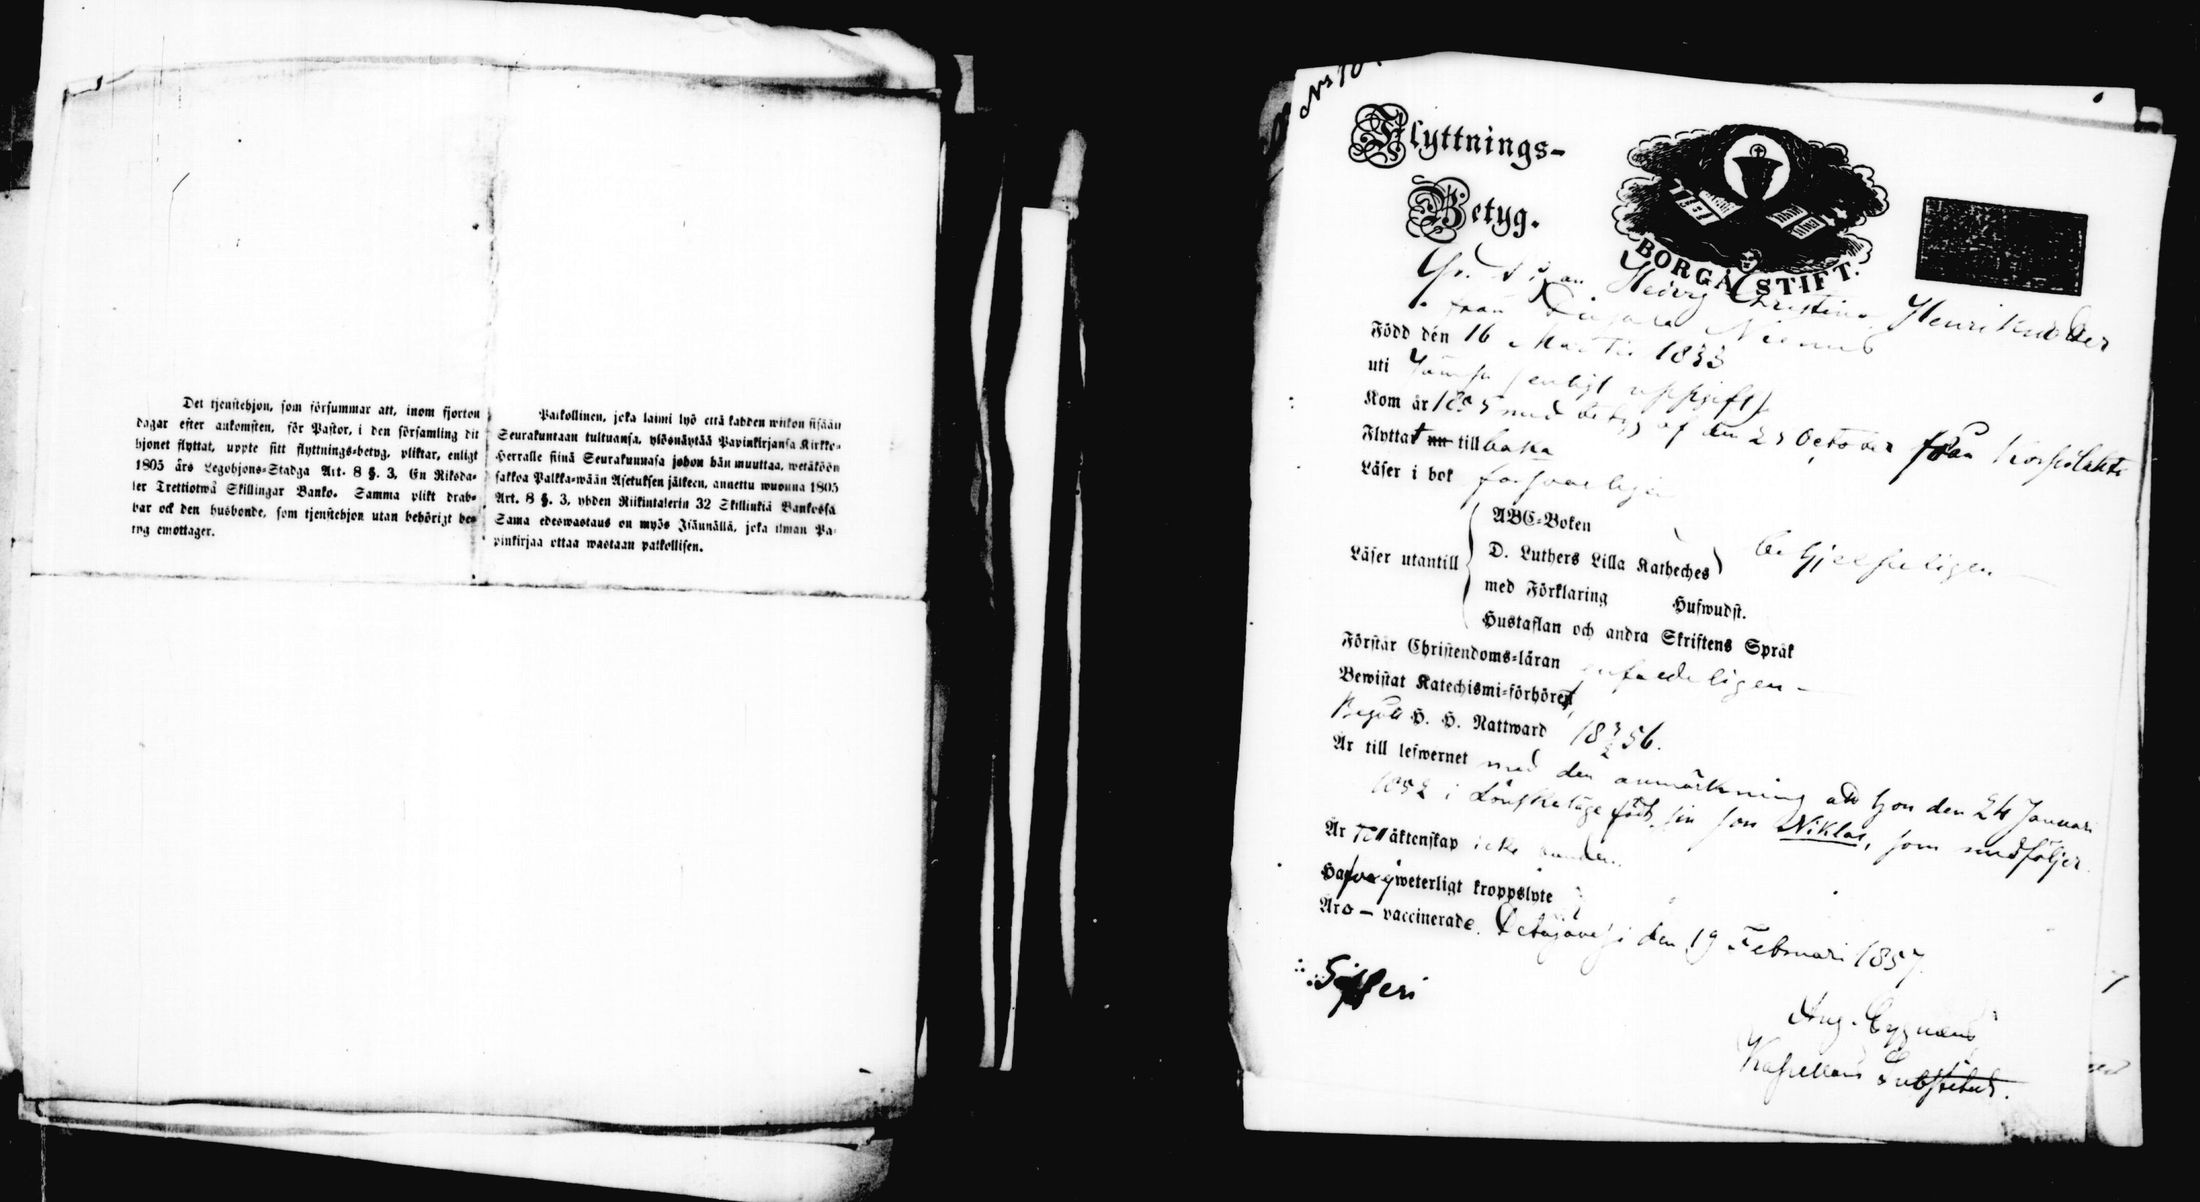 Det tjenstehjon, som försummar att, inom fjorton
dagar efter ankomsten, för Pastor, i den församling dit
hjonet flyttat, uppte sitt flyttnings-betyg, pliktar, enligt
1805 års Legohjons-Stadga Art. 8 §. 3, En Riksda-
ler Trettiotwå Skillingar Banko. Samma plikt drab-
bar ock den husbonde, som tjenstehjon utan behörigt be-
tyg emottager.
Palkollinen, joka laimi lyö että kahden wiikon sisään
Seurakuntaan tultuansa, ylösnäyttää Papinkirjansa Kirkko-
Herralle siinä Seurakunnasa johon hän muuttaa, wetäköön
sakkoa Palkka-wään Asetuksen jälkeen, annettu wuonna 1805
Art. 8 §. 3, yhden Riikintalerin 32 Skillinkiä Bankossa
Sama edeswastaus on myös Isännällä, joka ilman Pa-
pinkirjaa ottaa wastaan palkollisen.
No 10
Flyttnings-
Betyg.
BORGÅ STIFT.
Hedvig Christina Henriksdotter
från Niemis
Född den 16 Martii 1833
uti Jämsä (enligt uppgift)
Kom år 1855 med betyg af den 27 October från Korpilahti
Flyttat nu till baka
Läser i bok försvarligen
Läser utantill
ABC-Boken
D. Luthers Lilla Katheches
med Förklaring Hufwudst.
Hustaflan och andra Skriftens Språk
behjelpeligen
Förstår Christendoms-läran
Bewistat Katechismi-förhören
Begått H. H. Nattward 18 56.
Är till lefwernet med den anmärkning att hon den 24 Januari
1852 i Lönskaläge födt sin son Niklas, som medföljer.
Är till äktenskap icke bunden.
Hafva ej weterligt kroppslyte
Äro – vaccinerade. Petäjävesi den 19 Februari 1857.
Aug. Cygnæus
Kapellans Substitut.